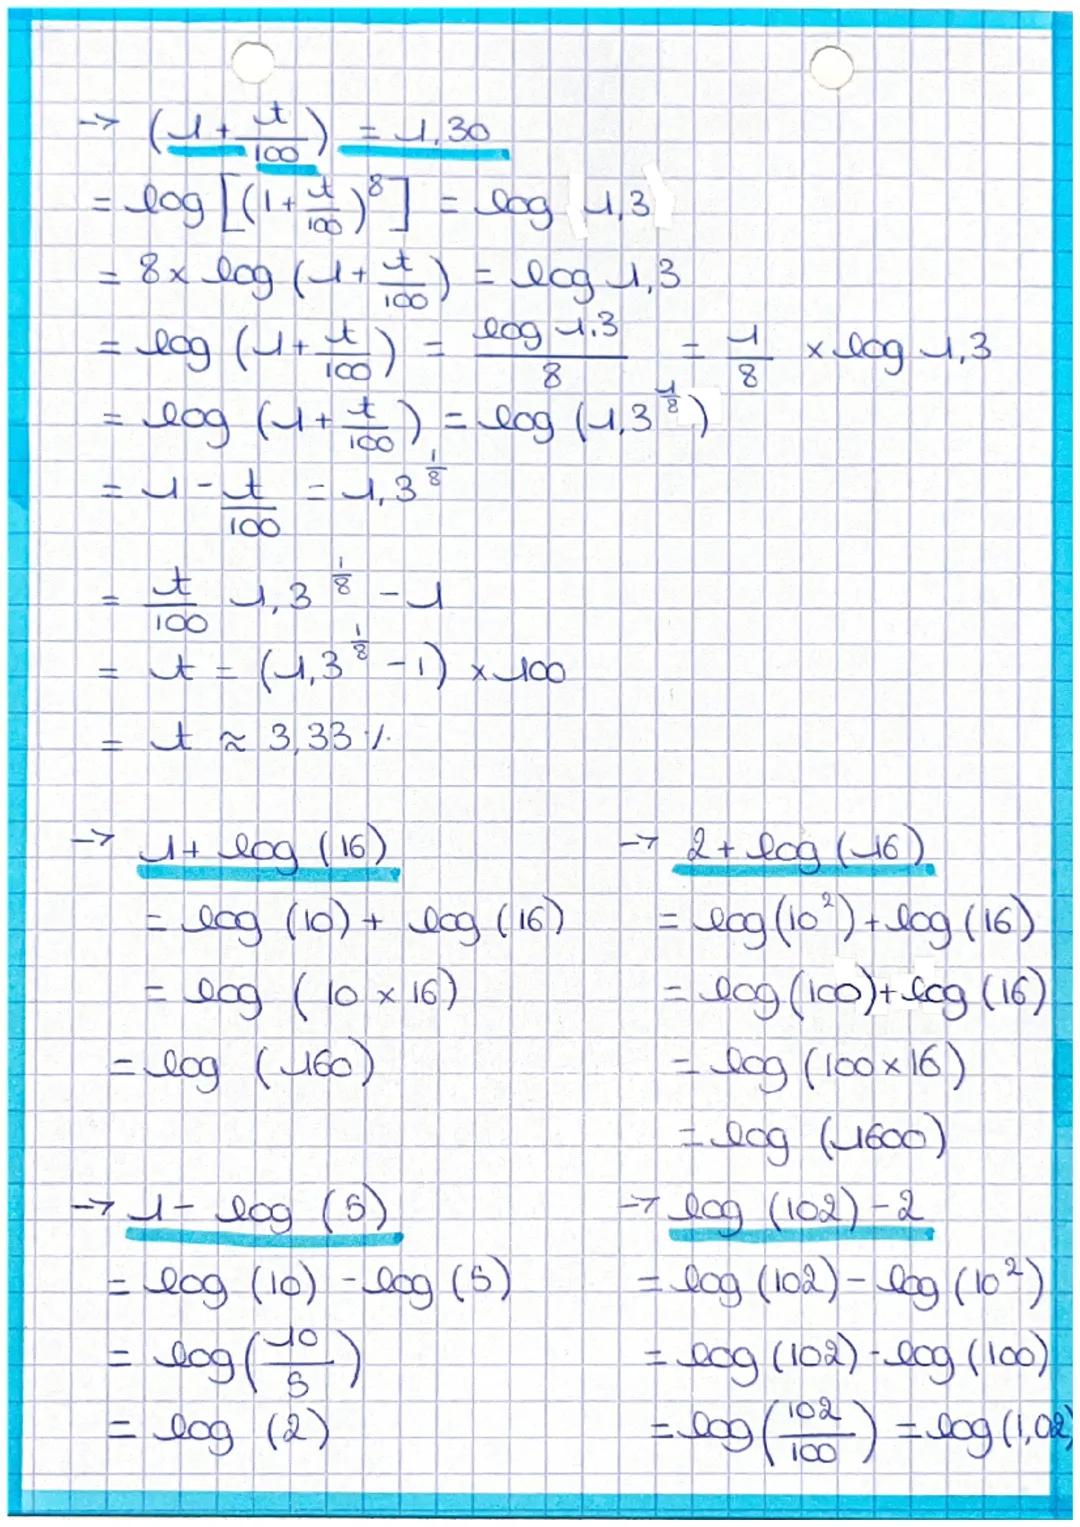 → (1 + t/100) = 1,30
= log [(1 + t/100)^8] = log 1,3
= 8 x log (1 + t/100) = log 1,3
= log (1 + t/100) = log 1.3/8 = 1/8 x log 1,3
= log (1 + t/100) = log (1,3^1/8)
= 1 - t/100 = 1,3^1/8
= t/100 1,3^1/8 - 1
= t = (1,3^1/8 - 1) x 100
= t ≈ 3,33 %
→ 1 + log (16)
= log (10) + log (16)
= log (10 x 16)
= log (160)
→ 2 + log (16)
= log (10²) + log (16)
= log (100) + log (16)
= log (100 x 16)
= log (1600)
→ 1 - log (5)
= log (10) - log (5)
= log (10/5)
= log (2)
→ log (102) - 2
= log (102) - log (10²)
= log (102) - log (100)
= log (102/100) = log (1,02)